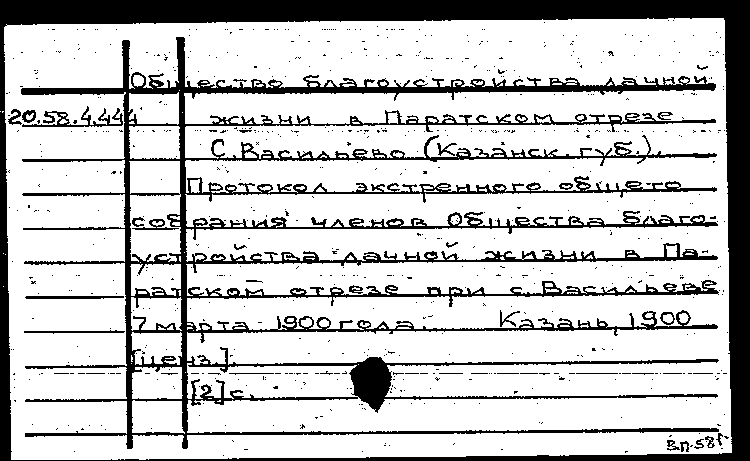 Общество благоустройства дачной
20.58.4.444 жизни в Паратском отрезе
С. Васильево (Казанск. губ.).
Протокол экстренного общего
собрания членов Общества благо-
устройства дачной жизни в Па-
ратском отрезе при с. Васильеве
7 марта 1900 года. Казань, 1900
[ценз.]
[2] с.
В.п. 58г